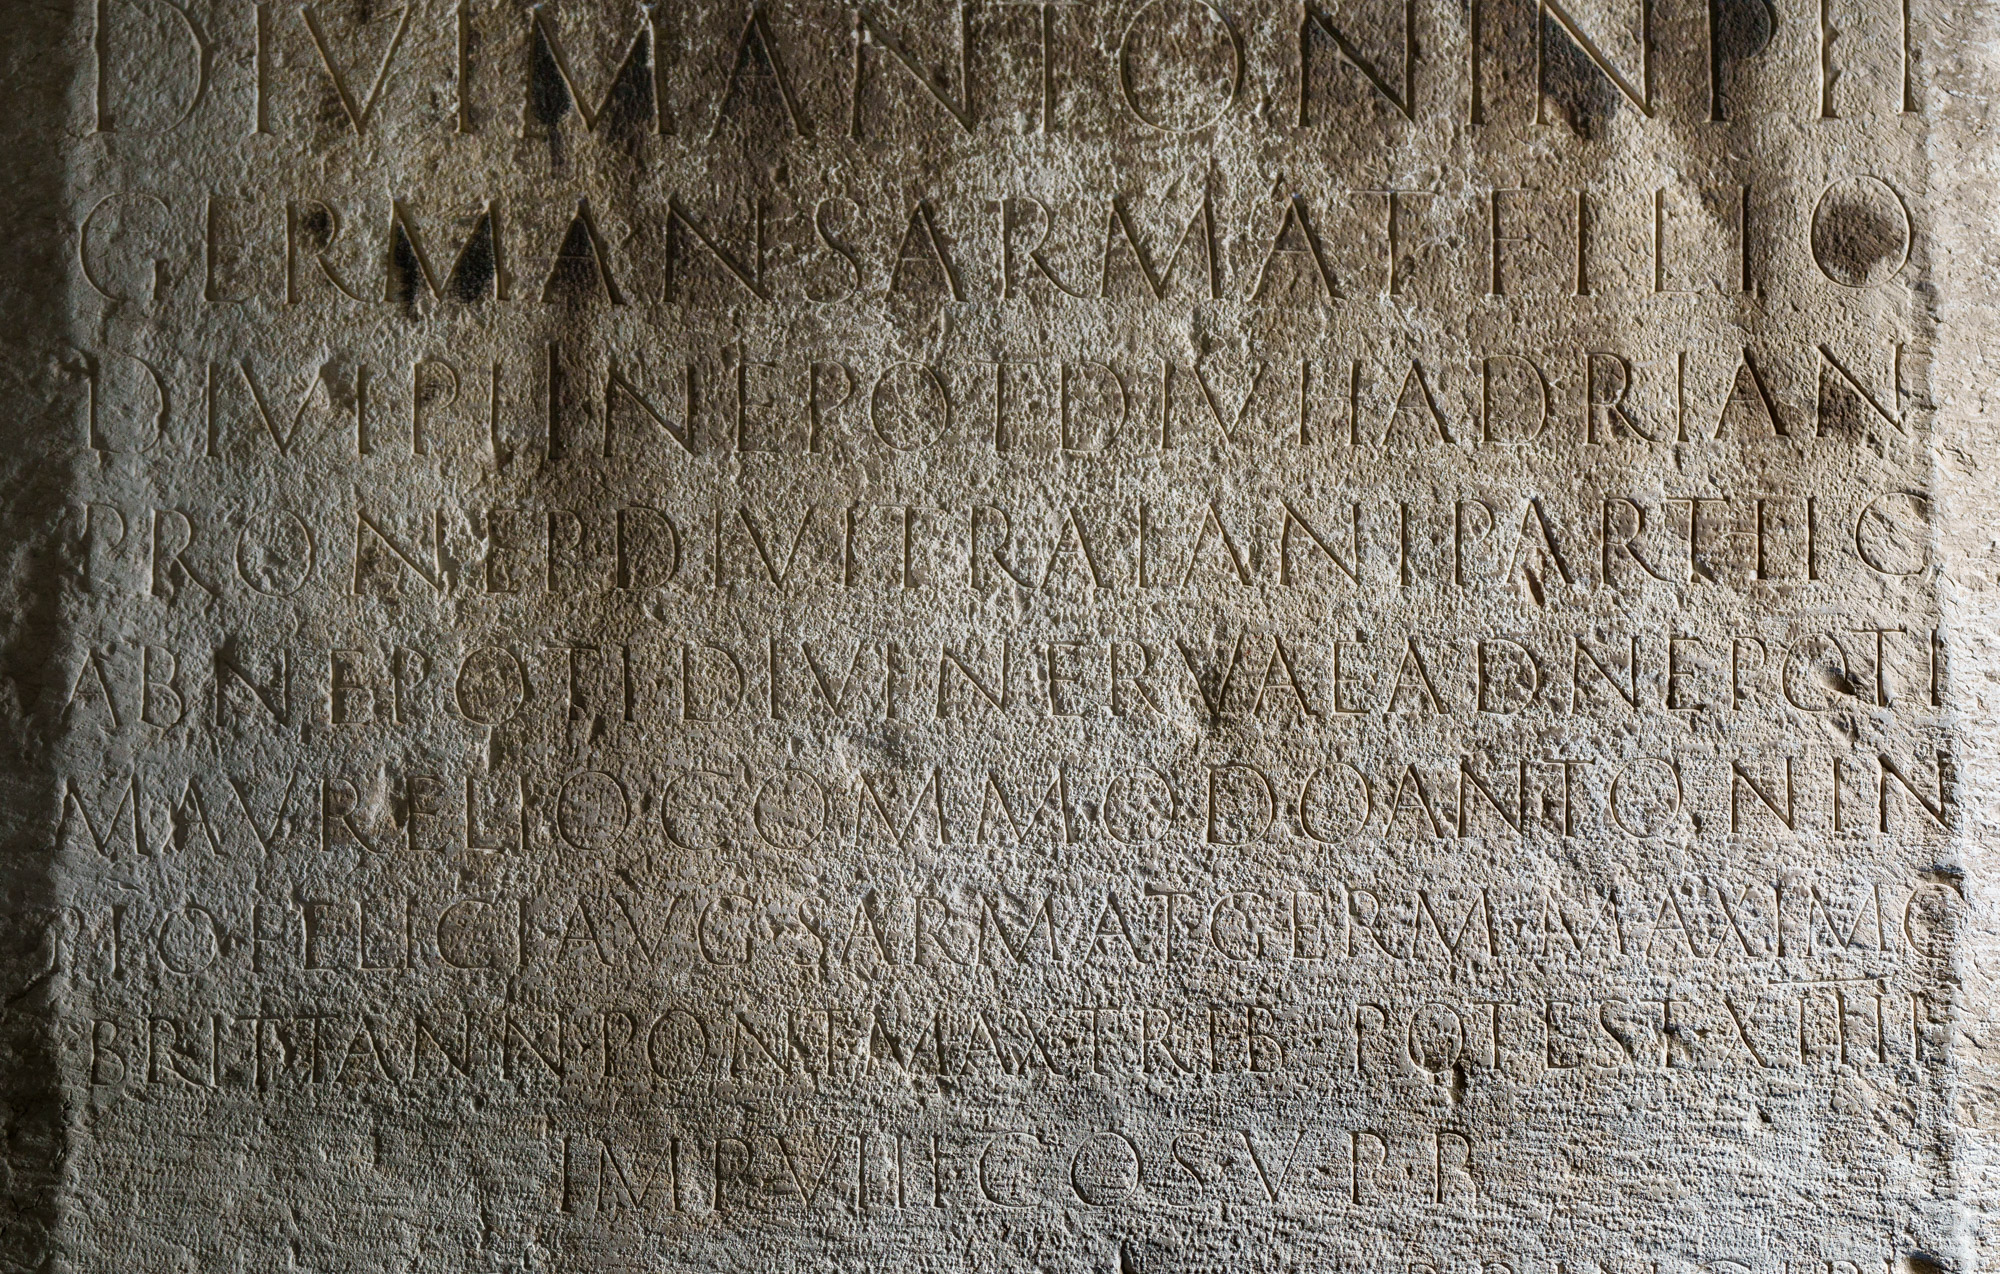 DIVI M ANTONINI PII
GERMAN SARMAT FILIO
DIVI PII NEPOT DIVI HADRIAN
PRONEP DIVI TRAIANI PARTHIC
ABNEPOTI DIVI NERVAE ADNEPOTI
M AVRELIO COMMODO ANTONIN
PIO FELICI AVG SARMAT GERM MAXIMO
BRITTANN PONT MAX TRIB POTEST XIIII
IMP VIII COS V P P